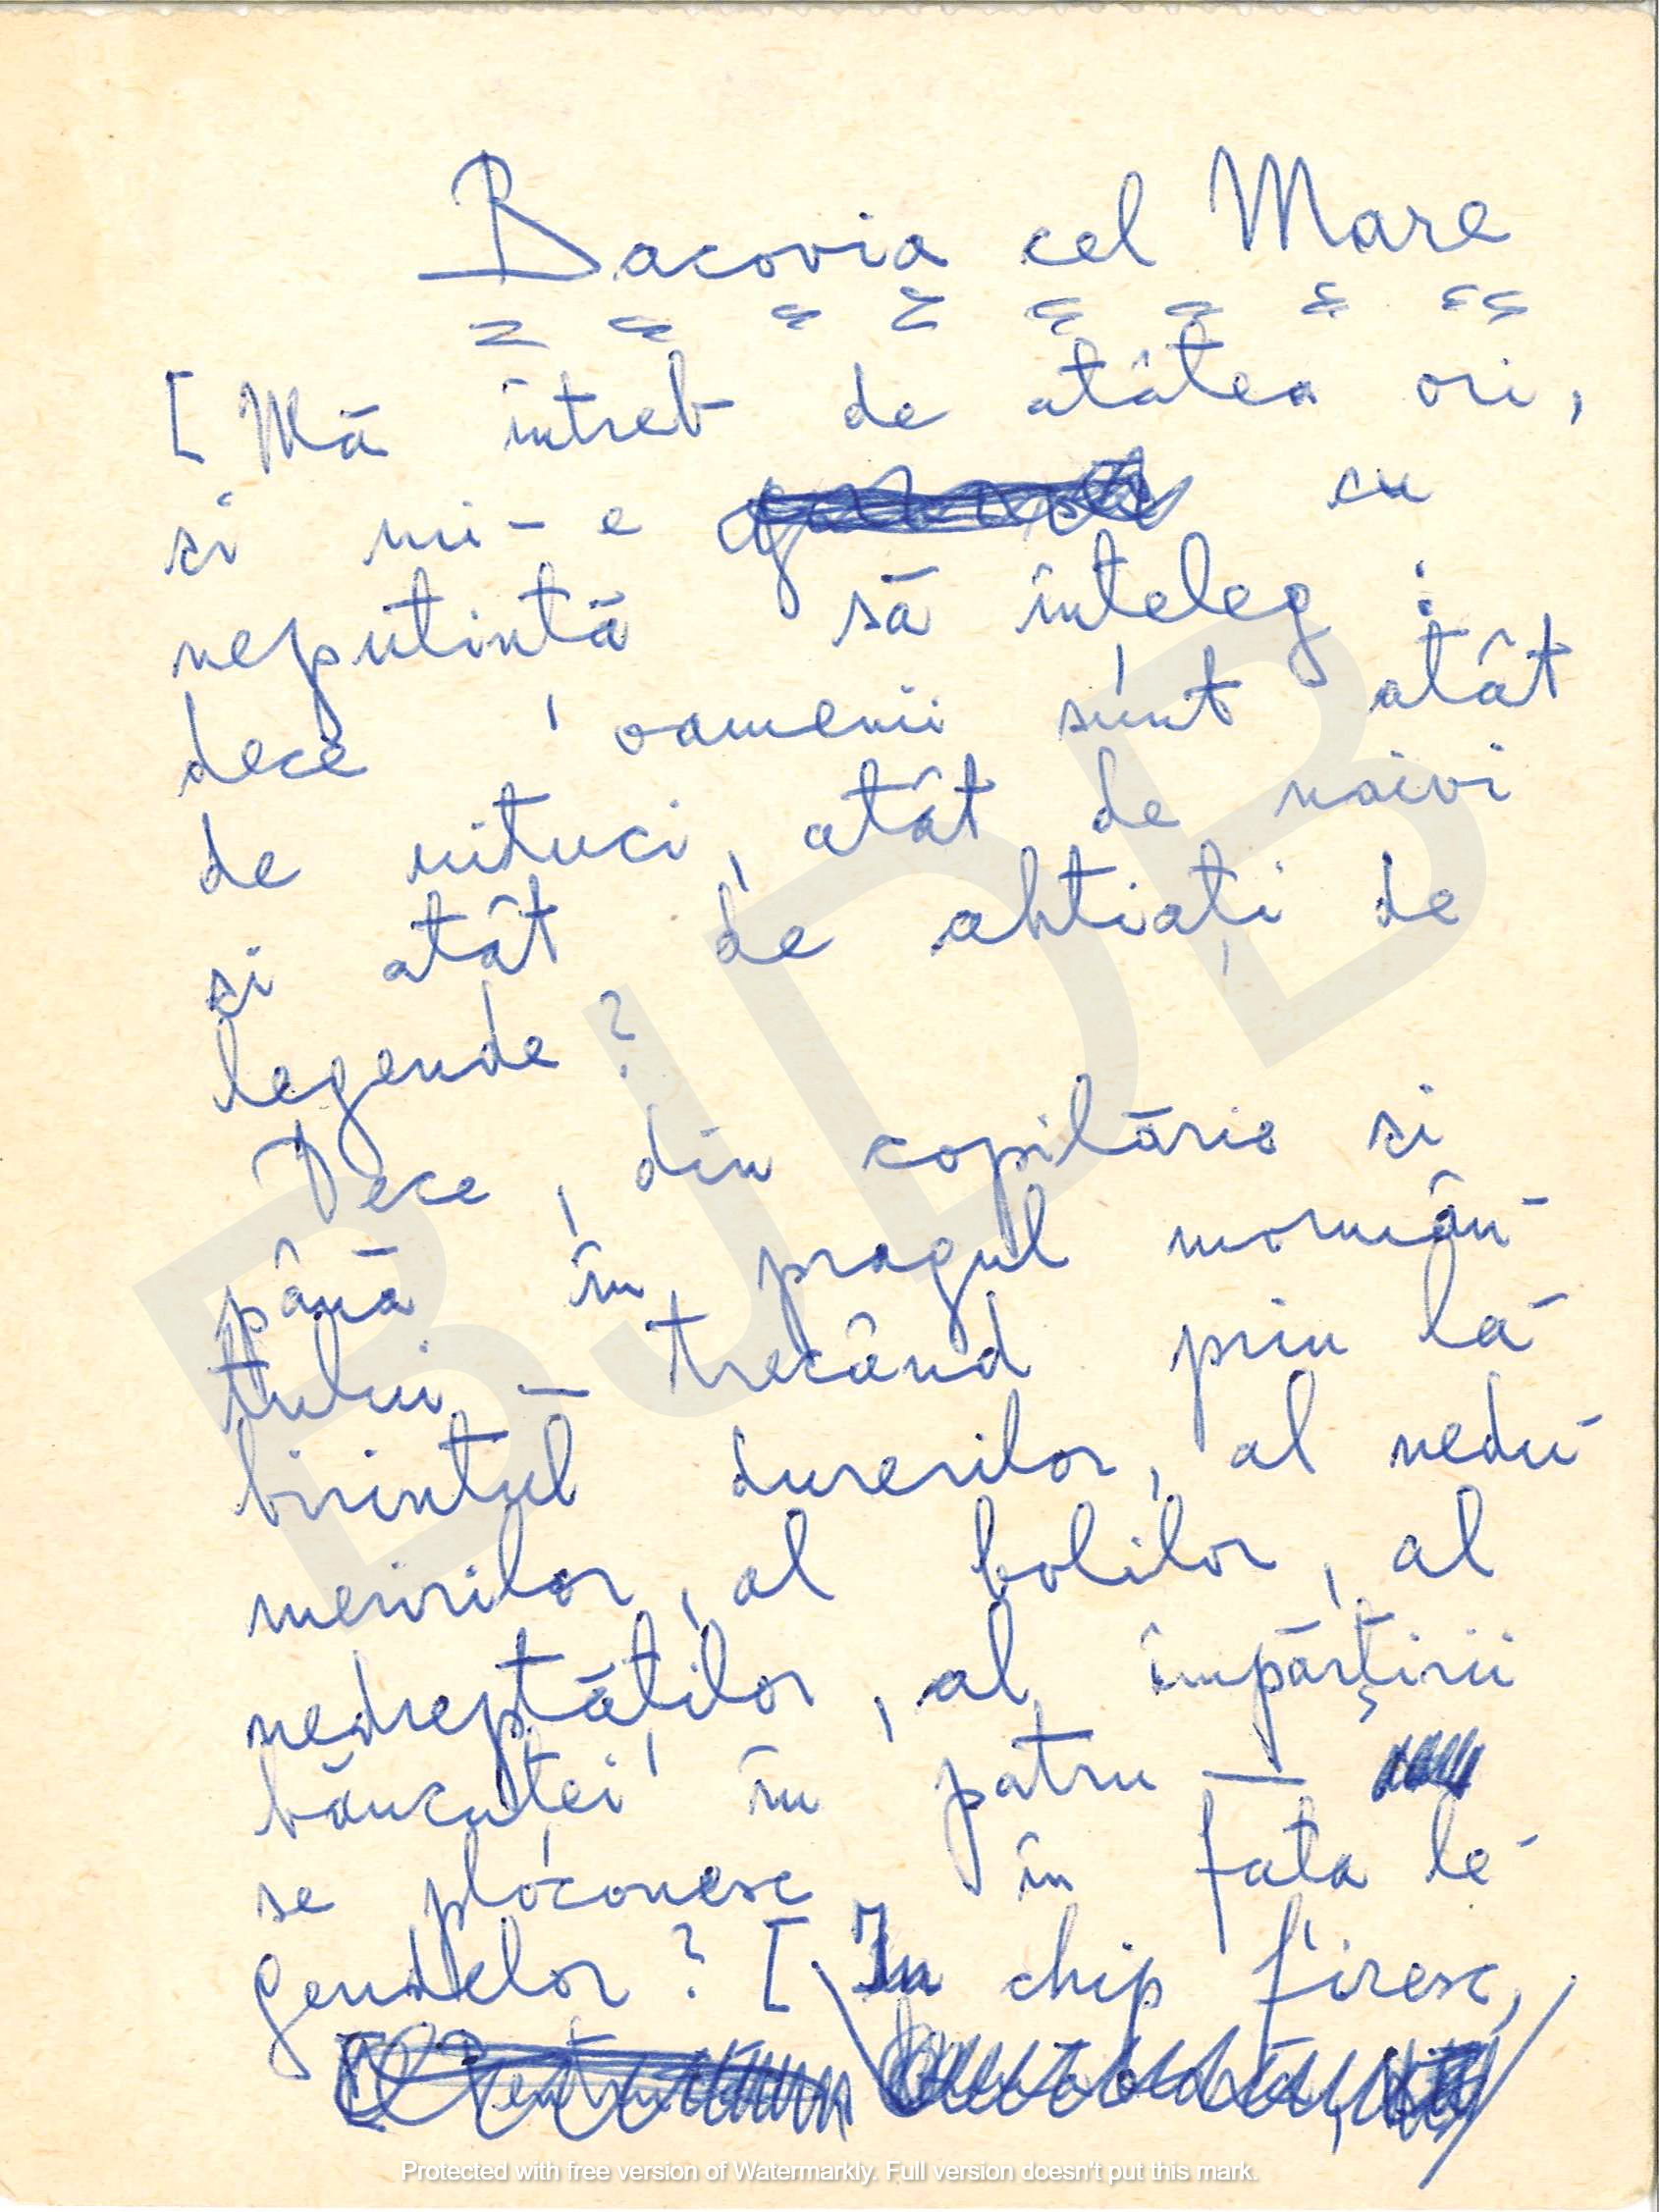 Bacovia cel Mare
[Mă întreb de atâtea ori,
și mi-e cu
neputință să înțeleg :
dece oamenii sunt atât
de uituci, atât de naivi
și atât de ahtiați de
legende?
Dece, din copilărie și
până în pragul mormân-
tului – trecând prin la-
birintul durerilor, al nedu-
meririlor, al bolilor, al
nedreptăților, al împărțirii
băncuței în patru —
se ploconesc în fața le-
gendelor? [ În chip firesc,
BJDB
Protected with free version of Watermarkly. Full version doesn't put this mark.